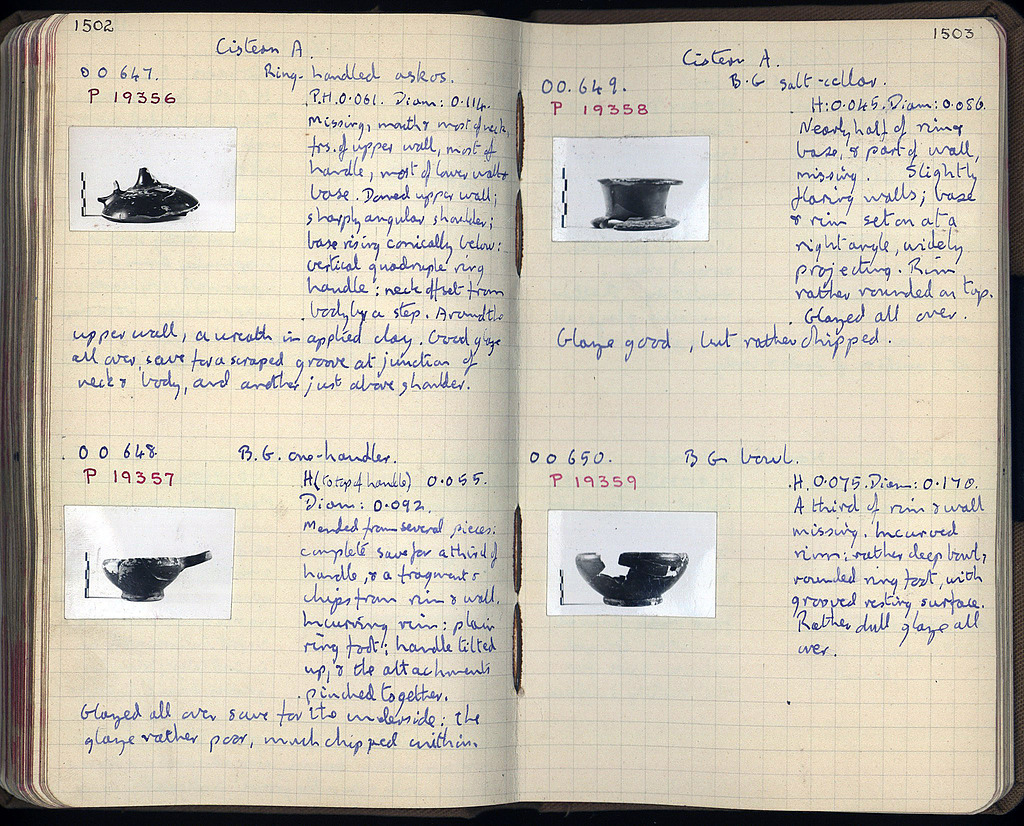 1502
Cistern A.
OO 647. Ring-handled askos.
P 19356
P.H. 0.061. Diam: 0.114.
Missing, mouth & most of neck,
frs. of upper wall, most of
handle, most of lower wall &
base. Domed upper wall;
sharply angular shoulder;
base rising conically below:
vertical quadruple ring
handle: neck offset from
body by a step. Around the
upper wall, a wreath in applied clay. Good glaze
all over, save for a scraped groove at junction of
neck & body, and another just above shoulder.
OO 648. B.G. one-handler.
P 19357
H (to top of handle) 0.055.
Diam: 0.092.
Mended from several pieces:
complete save for a third of
handle, & a fragment &
chips from rim & wall.
Incurving rim: plain
ring foot: handle tilted
up, & the attachments
pinched together.
Glazed all over save for the underside: the
glaze rather poor, much chipped within.
1503
Cistern A.
OO. 649. B.G salt-cellar.
P 19358
H: 0.045. Diam: 0.086.
Nearly half of ring
base, & part of wall,
missing. Slightly
flaring walls; base
& rim set on at a
right angle, widely
projecting. Rim
rather rounded on top.
Glazed all over.
Glaze good, but rather chipped.
OO 650. B G bowl.
P 19359
H. 0.075. Diam: 0.170.
A third of rim & wall
missing. Incurved
rim: rather deep bowl,
rounded ring foot, with
grooved resting surface.
Rather dull glaze all
over.